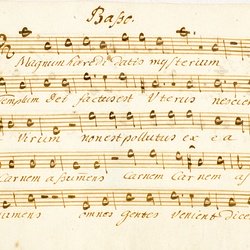 Basse.
Magnum hæreditatis mysterium
Templum Dei factus est Uterus nescie
Virum non est pollutus ex e a
Carnem assumens Carnem Carnem as
sumens omnes gentes venient dice